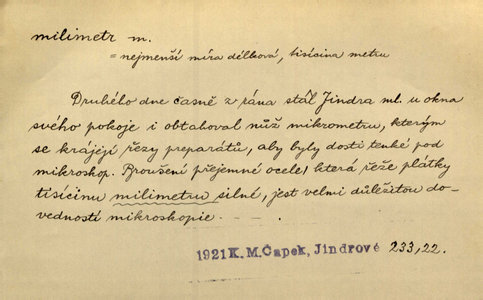 milimetr m.
= nejmenší míra délková, tisícina metru
Druhého dne časně z rána stál Jindra ml. u okna
svého pokoje i obtahoval nůž mikrometru, kterým
se krájejí řezy preparátů, aby byly dosti tenké pod
mikroskop. Broušení příjemné ocele, která řeže plátky
tisícinu milimetru silné, jest velmi důležitou do-
vedností mikroskopie.
1921 K. M. Čapek, Jindrové 233,22.